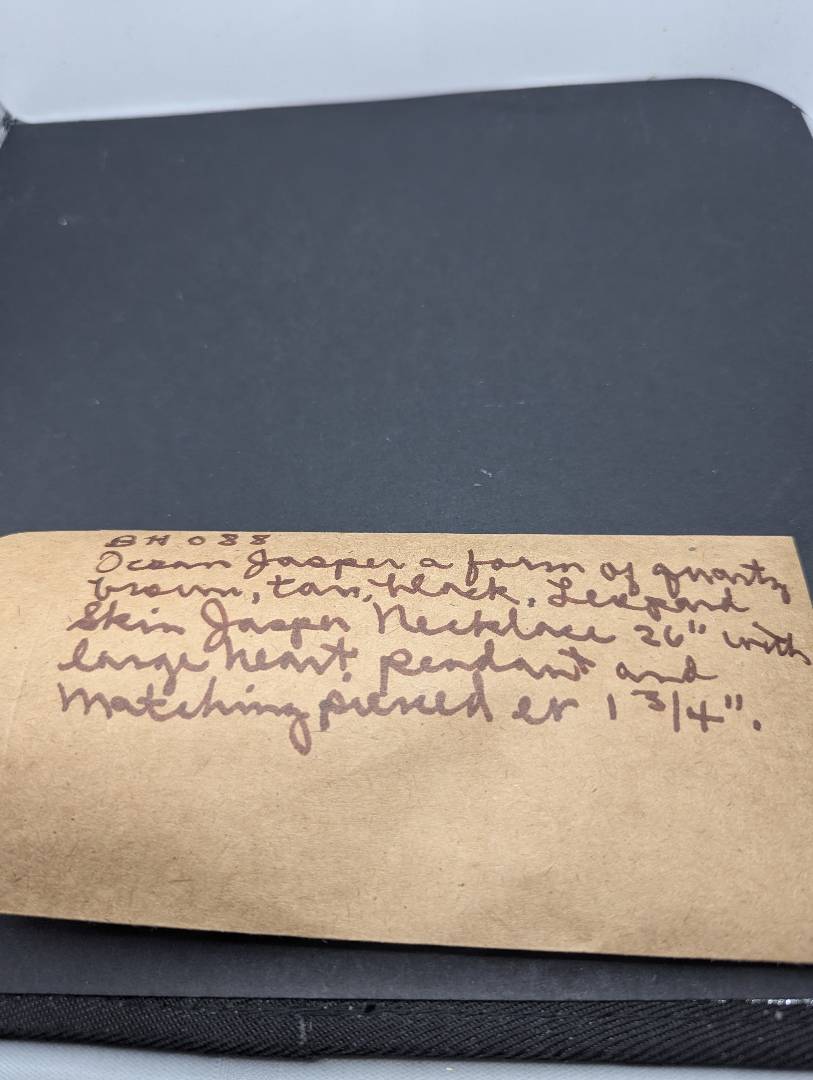 BH 088
Ocean Jasper a form of quartz
brown, tan, black, Leopard
Skin Jasper Necklace 26" with
large heart pendant and
Matching pierced er 1 3/4".